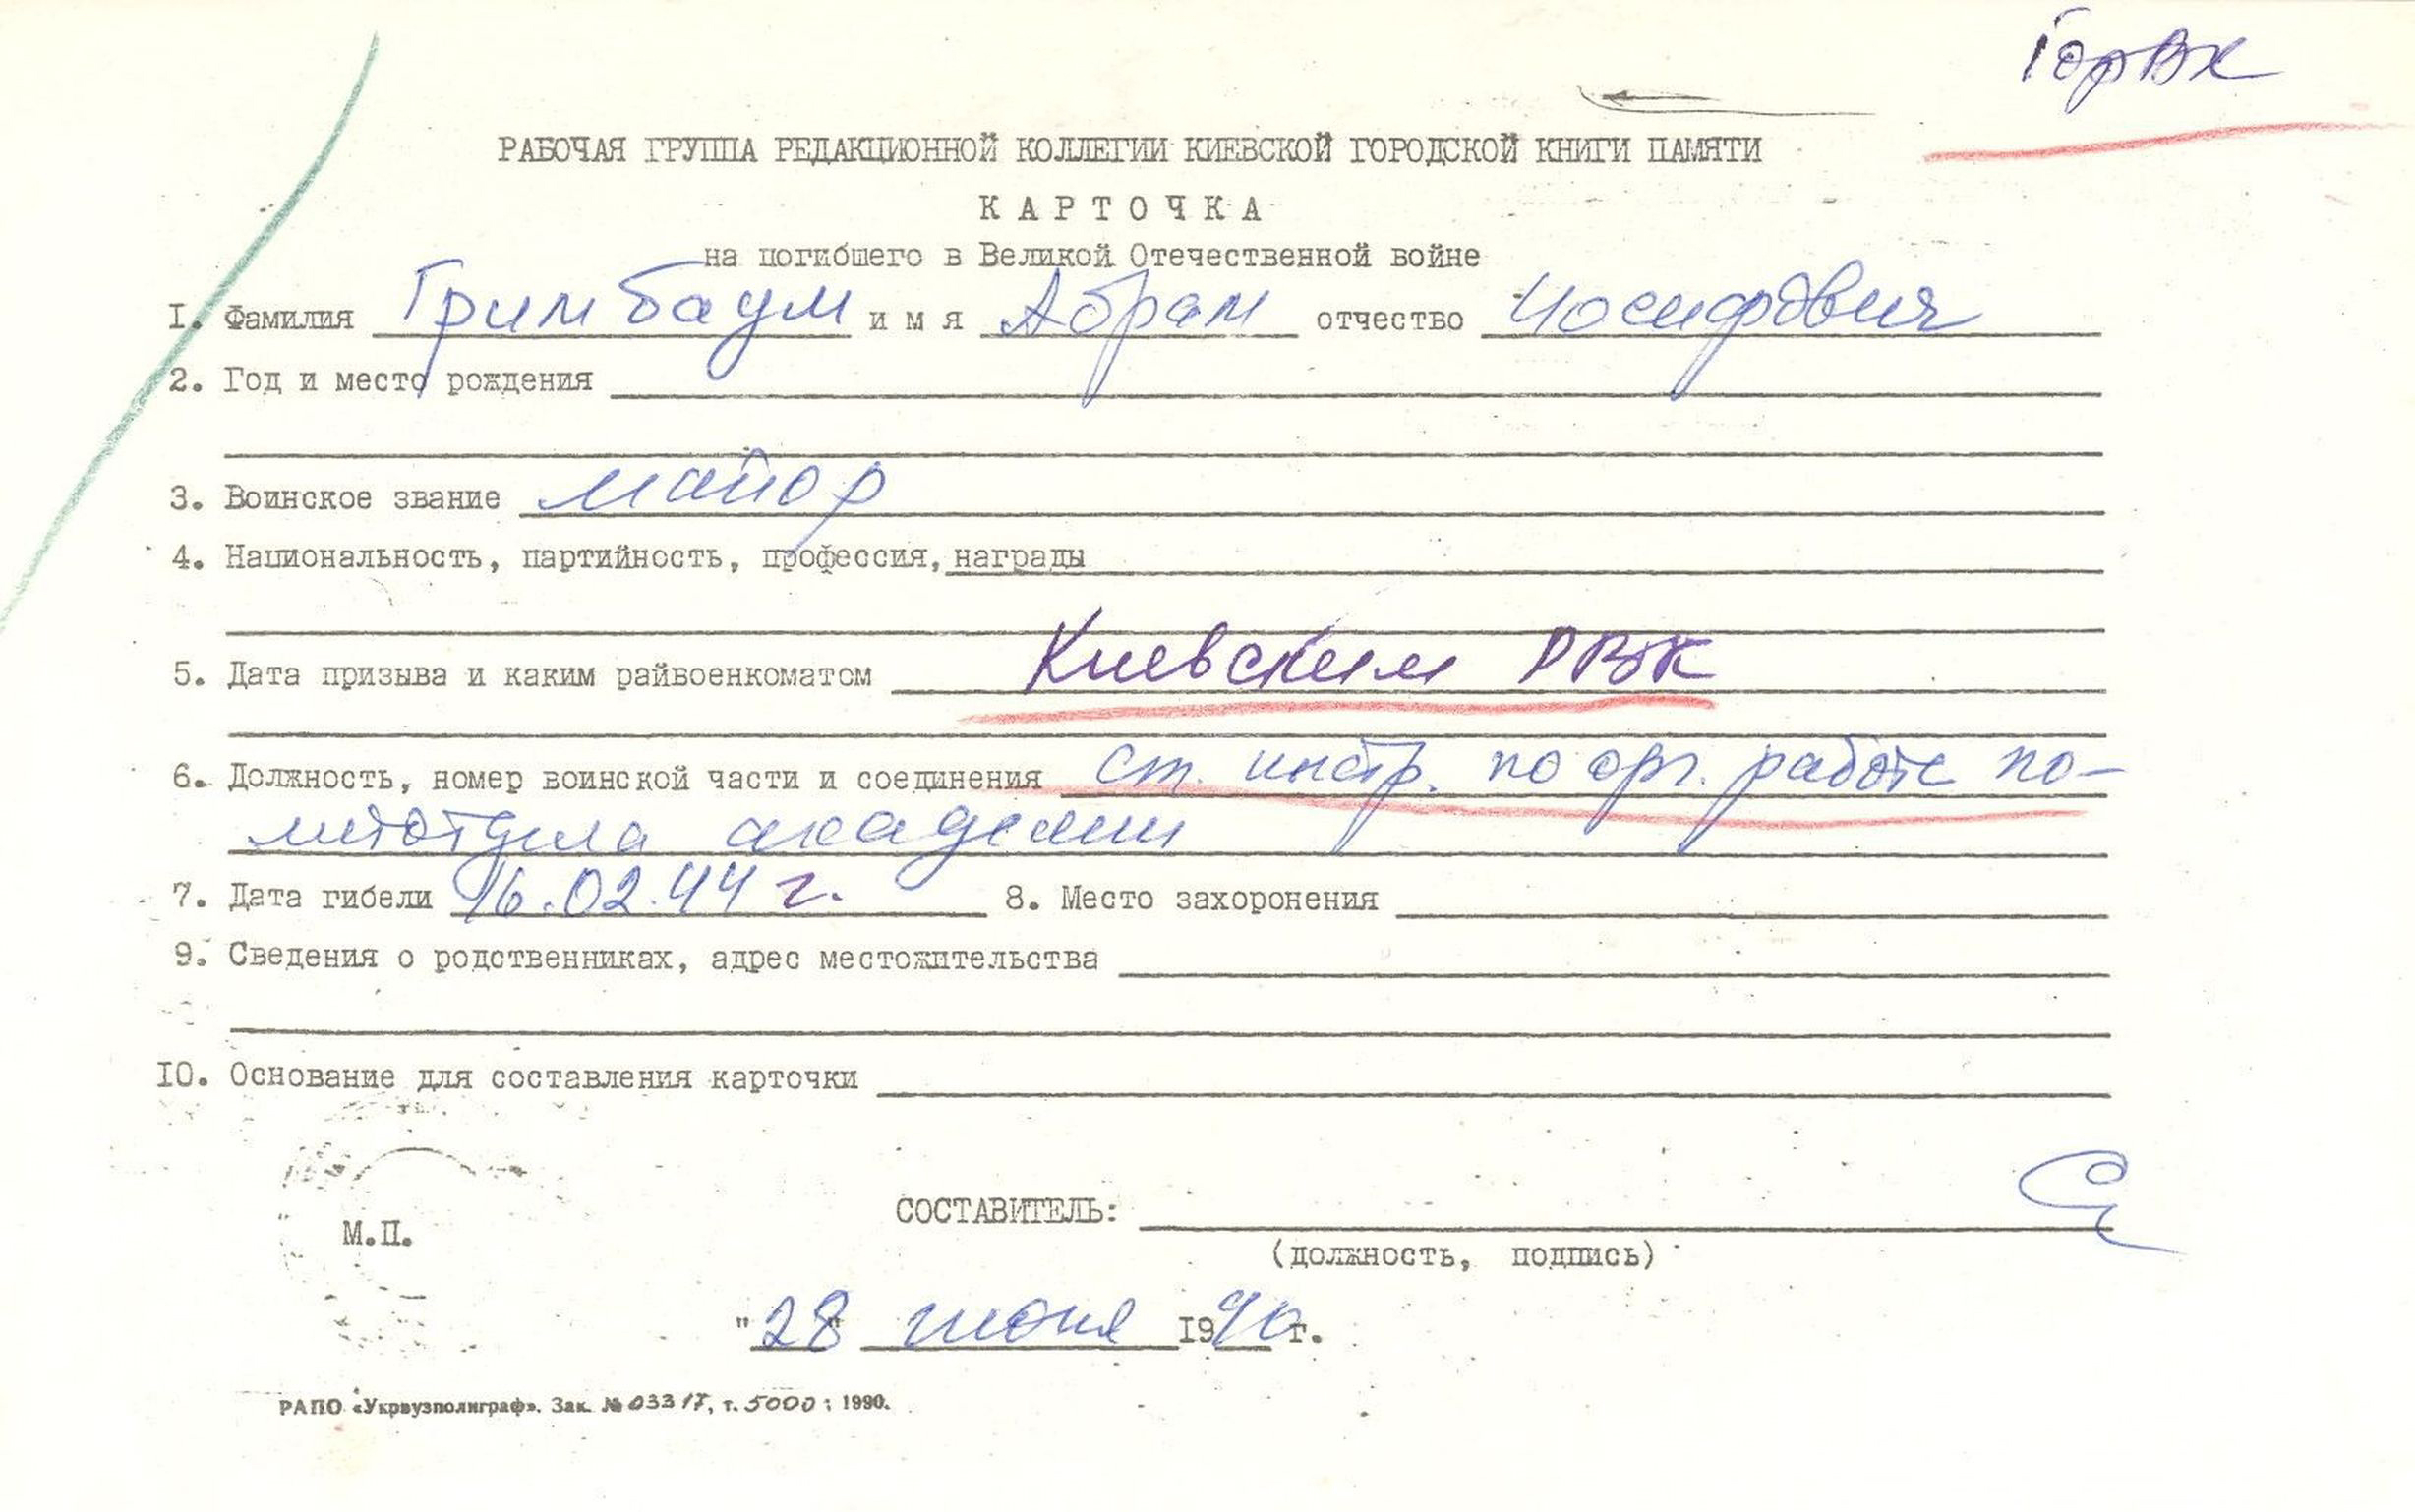 ГорВК
РАБОЧАЯ ГРУППА РЕДАКЦИОННОЙ КОЛЛЕГИИ КИЕВСКОЙ ГОРОДСКОЙ КНИГИ ПАМЯТИ
КАРТОЧКА
на погибшего в Великой Отечественной войне
I. Фамилия Гримбаум имя Абрам отчество Иосифович
2. Год и место рождения
3. Воинское звание майор
4. Национальность, партийность, профессия, награды
5. Дата призыва и каким райвоенкоматом Киевским РВК
6. Должность, номер воинской части и соединения ст. инстр. по орг. работе по-
литотдела академии
7. Дата гибели 16.02.44 г. 8. Место захоронения
9. Сведения о родственниках, адрес местожительства
IO. Основание для составления карточки
СОСТАВИТЕЛЬ:
М.П.
(должность, подпись)
"28" июня 1990г.
РАПО «Укрвузполиграф». Зак. № 03317, т. 5000; 1990.